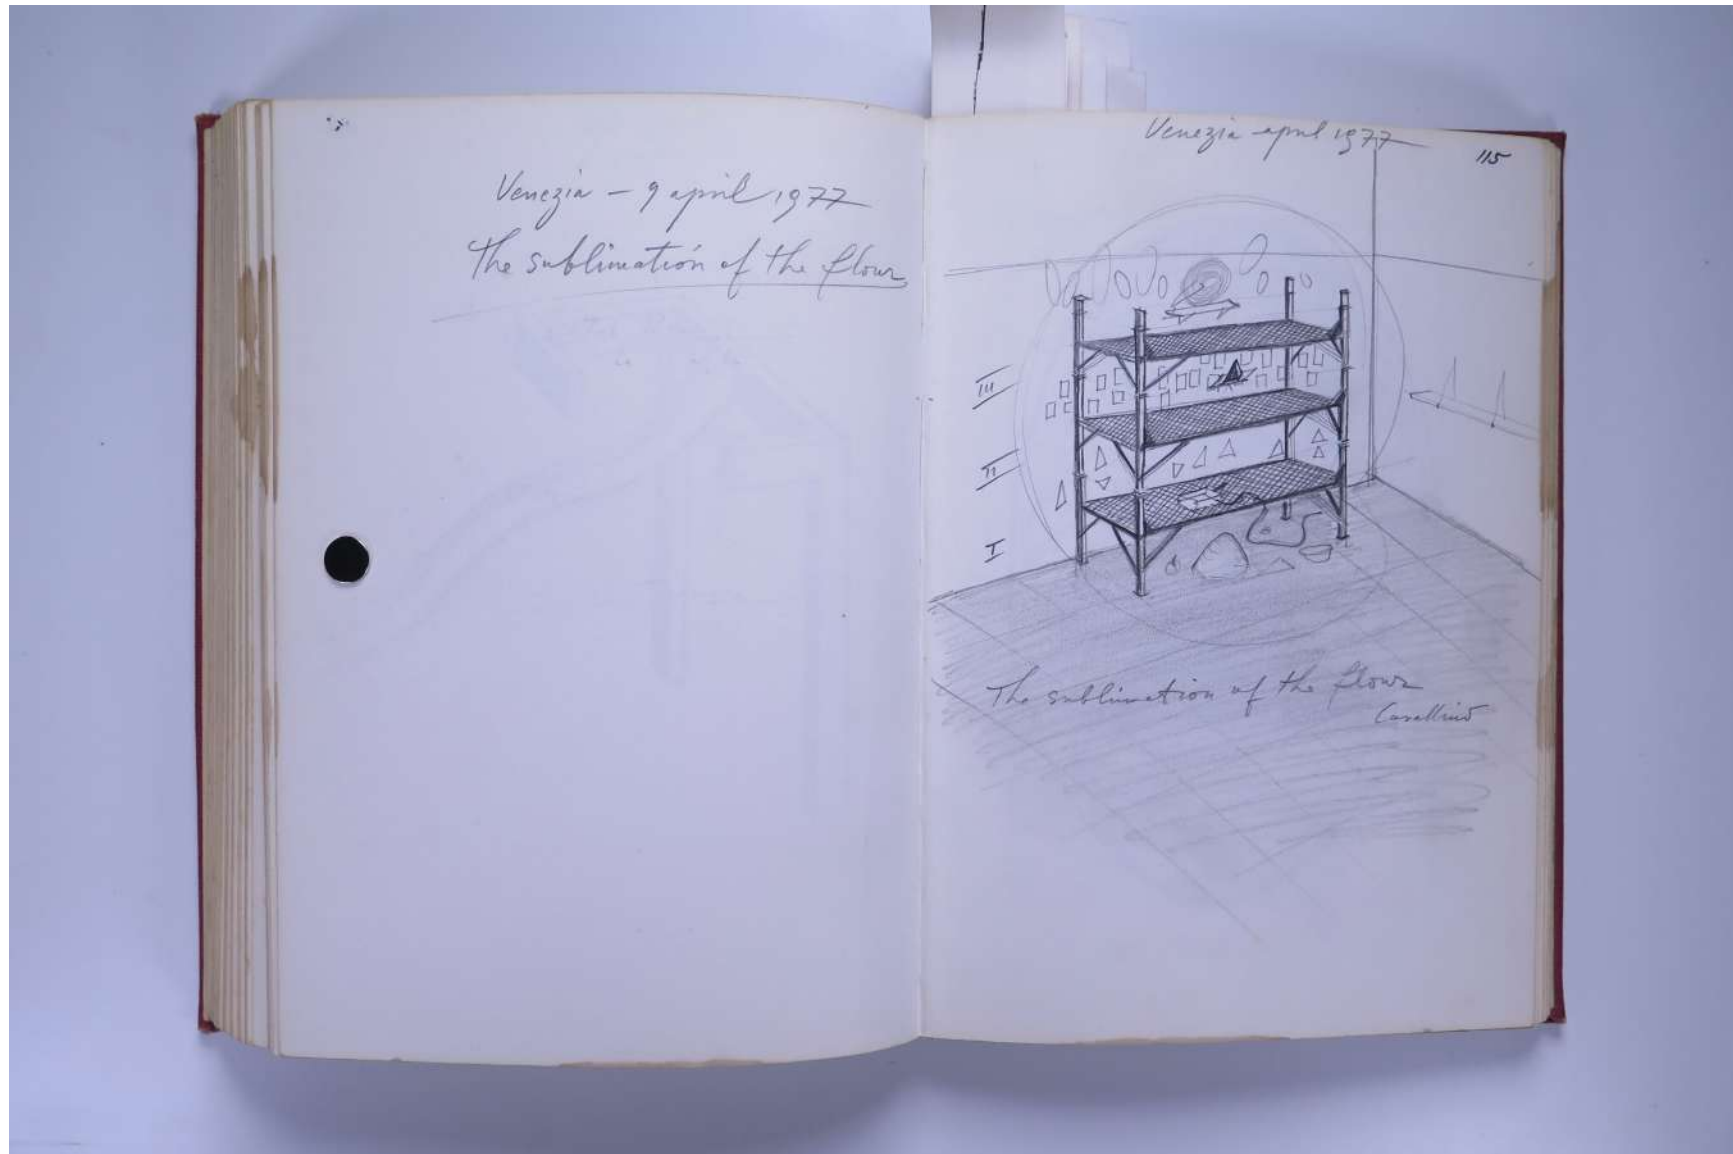 Venezia – 9 april 1977
The sublimation of the flour
Venezia april 1977
115
III
II
I
The sublimation of the flour
Cavallino